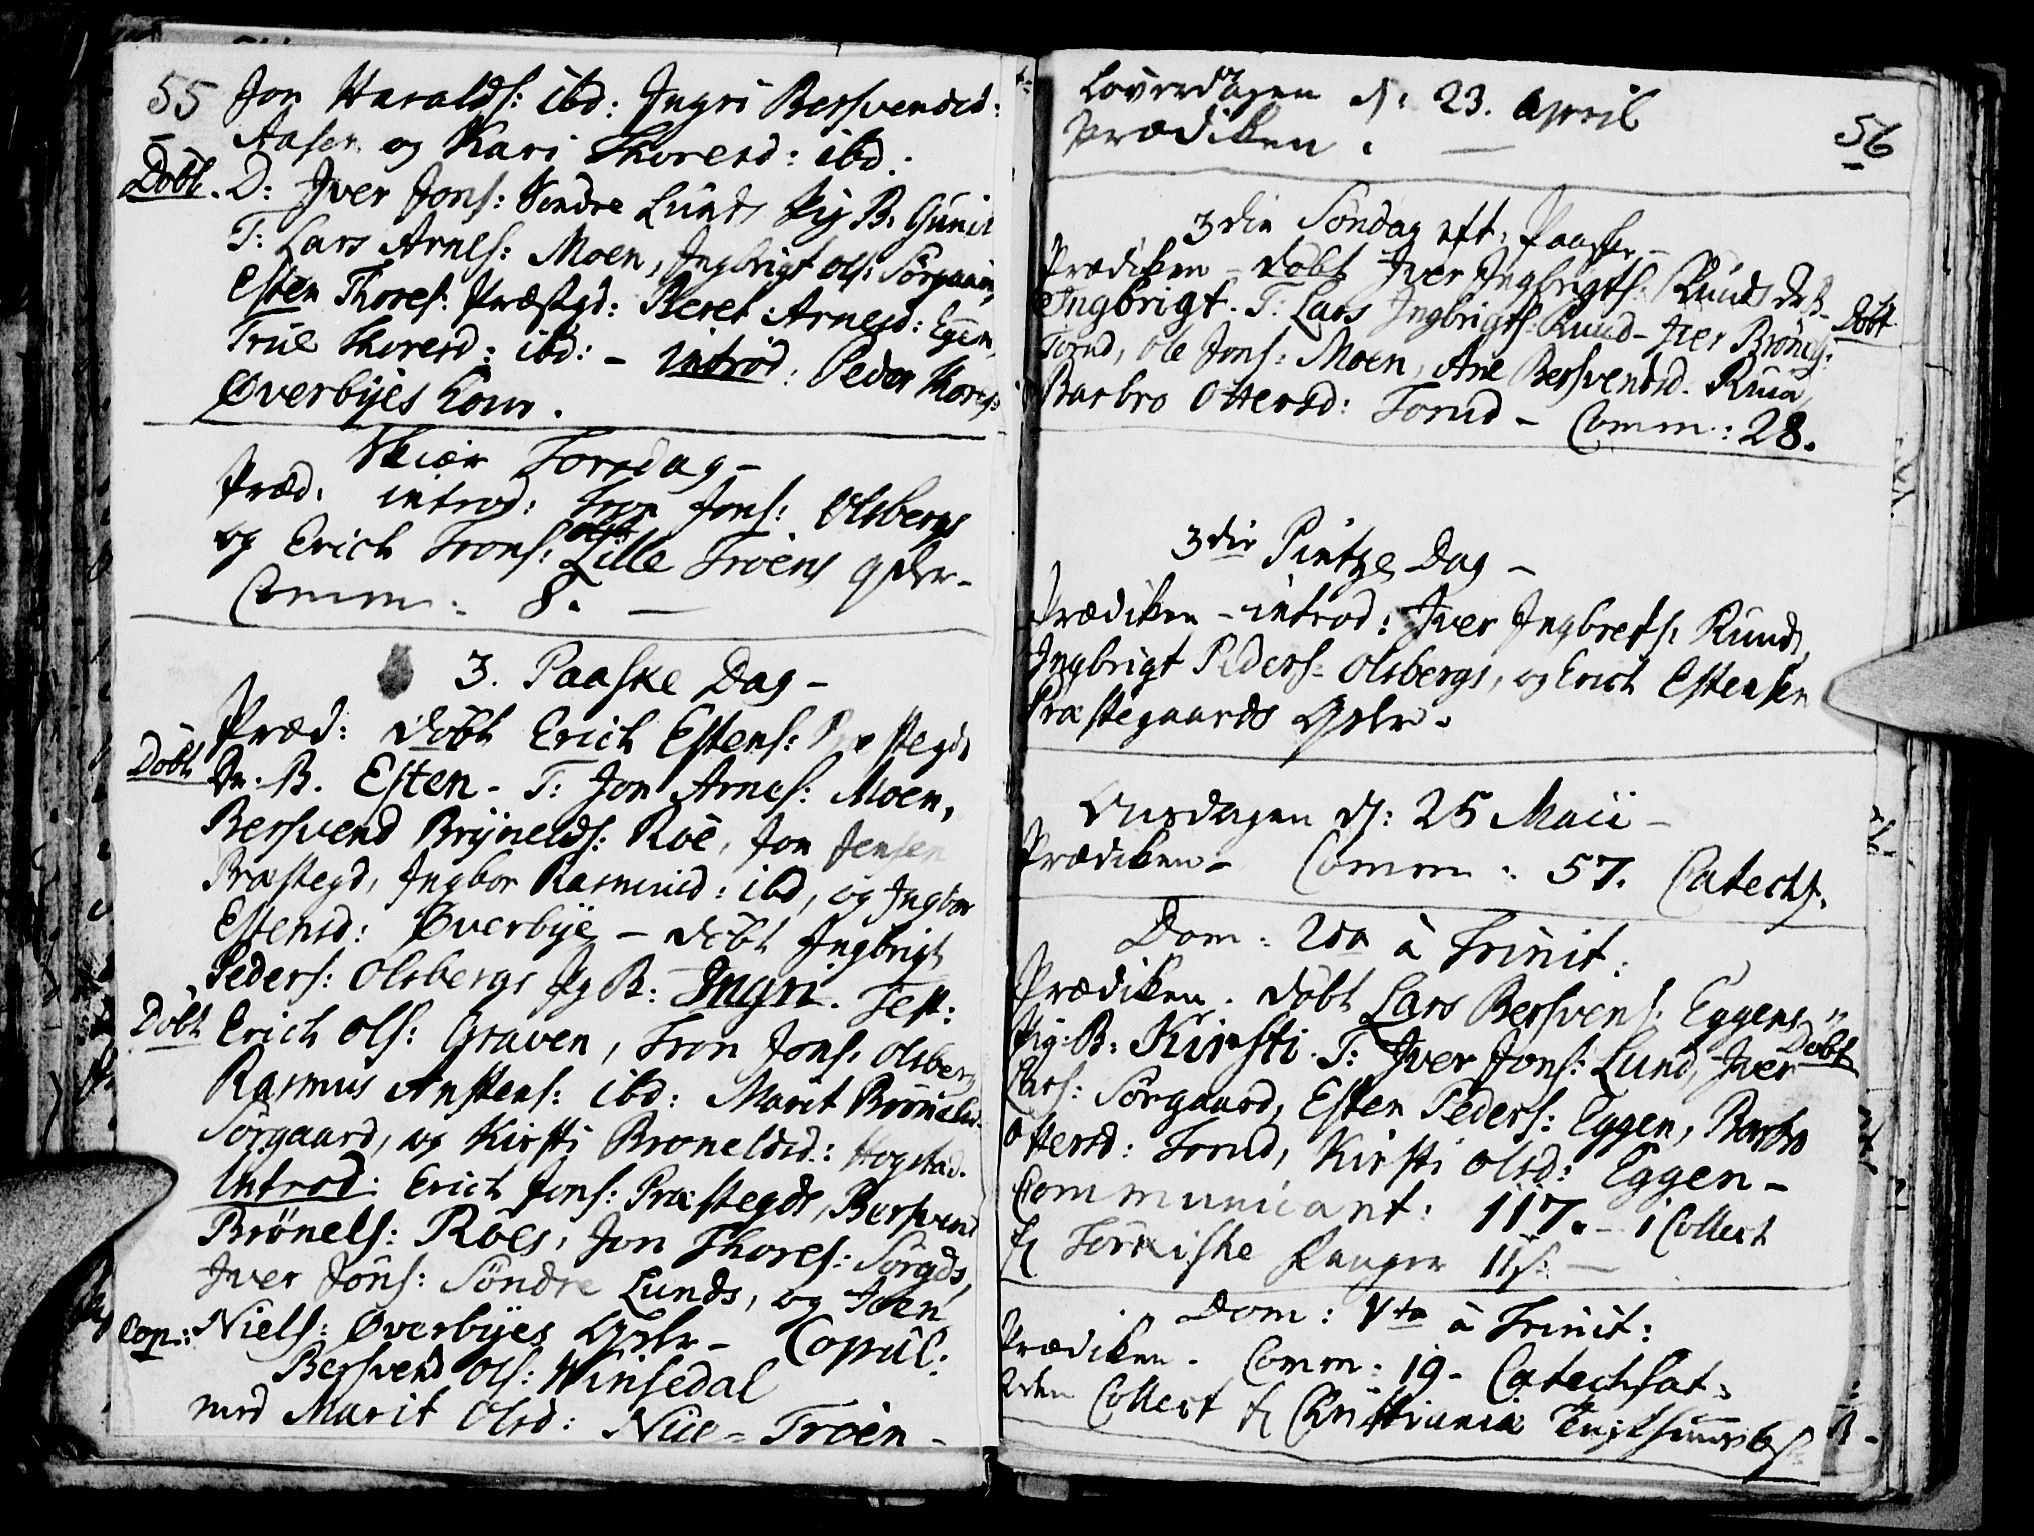 55
Jon Haralds: ibd: Ingri Bersvendsd:
Aasen og Kari Thoresd: ibd.
Döbt. D: Iver Jons: Söndre Lunds Pig B. Gunil
T: Lars Arnes: Moen, Ingbrigt Ols: Sörgaard,
Esten Thores: Præstgd: Beret Arnesd: Eggen,
True Thoresd: ibd: - introd: Peder Thores:
Øverbyes Kone.
Skiær Torsdag -
Præd: introd: Tron Jons: Olsbergs
og Erich Trons: Lille Tröens qdr -
Comm: 8. -
3. Paaske Dag -
Præd: döbt Erich Estens: Præstegds
Döbt Dr. B. Esten - T: Jon Arnes: Moen,
Bersvend Brynelds: Roe, Jon Jensen
Præstegd, Ingbor Rasmusd: ibd, og Ingbor
Estensd: Øverbye - döbt Ingbrigt
Peders: Olsbergs Pg B: Ingri. Test:
Döbt Erich Ols: Graven, Tron Jons: Olsberg
Rasmus Anstens: ibd: Marit Brönelsd:
Sörgaard, og Kirsti Broneldsd: Hogstad.
Introd: Erich Jons: Præstegds, Bersvend
Brönels: Roes, Jon Thores: Sörgds,
Iver Jons: Söndre Lunds, og Joen
Cop: Niels: Øverbyes qdr - Copul:
Bersvend Ols: Winsedal
med Marit Olsd: Nüe-Tröen -
56
Löverdagen d: 23. April
Prædiken. -
3die Söndag eft: Paaske -
Prædiken - döbt Iver Ingbrigts: Ruuds Dr. B.
Döbt
Ingbrigt. T: Lars Ingbrigts: Ruud - Iver Brönels:
Torud, Ole Jons: Moen, Ane Bersvendsd. Ruud,
Barbro Ottersd: Torud - Comm: 28.
3die Pintze Dag -
Prædiken - introd: Iver Ingbrets: Ruuds,
Ingbrigt Peders: Olsbergs, og Erich Estensen
Præstegaards qdr.
Onsdagen d: 25 Maii -
Prædiken - Comm: 57. Catechs.
Dom: 2da à Trinit:
Prædiken. döbt Lars Bersvens: Eggens
Döbt
Pig: B: Kirsti. T: Iver Jons: Lund, Iver
Lars: Sörgaard, Esten Peders: Eggen, Barbro
Ottersd: Torud, Kirsti Olsd: Eggen -
Communicant: 117. - i Collect
f Törkiske Fanger 11 s: -
Dom: Vta à Trinit:
Prædiken. Comm: 19 - Catechsat:
2den Collect f Christiania